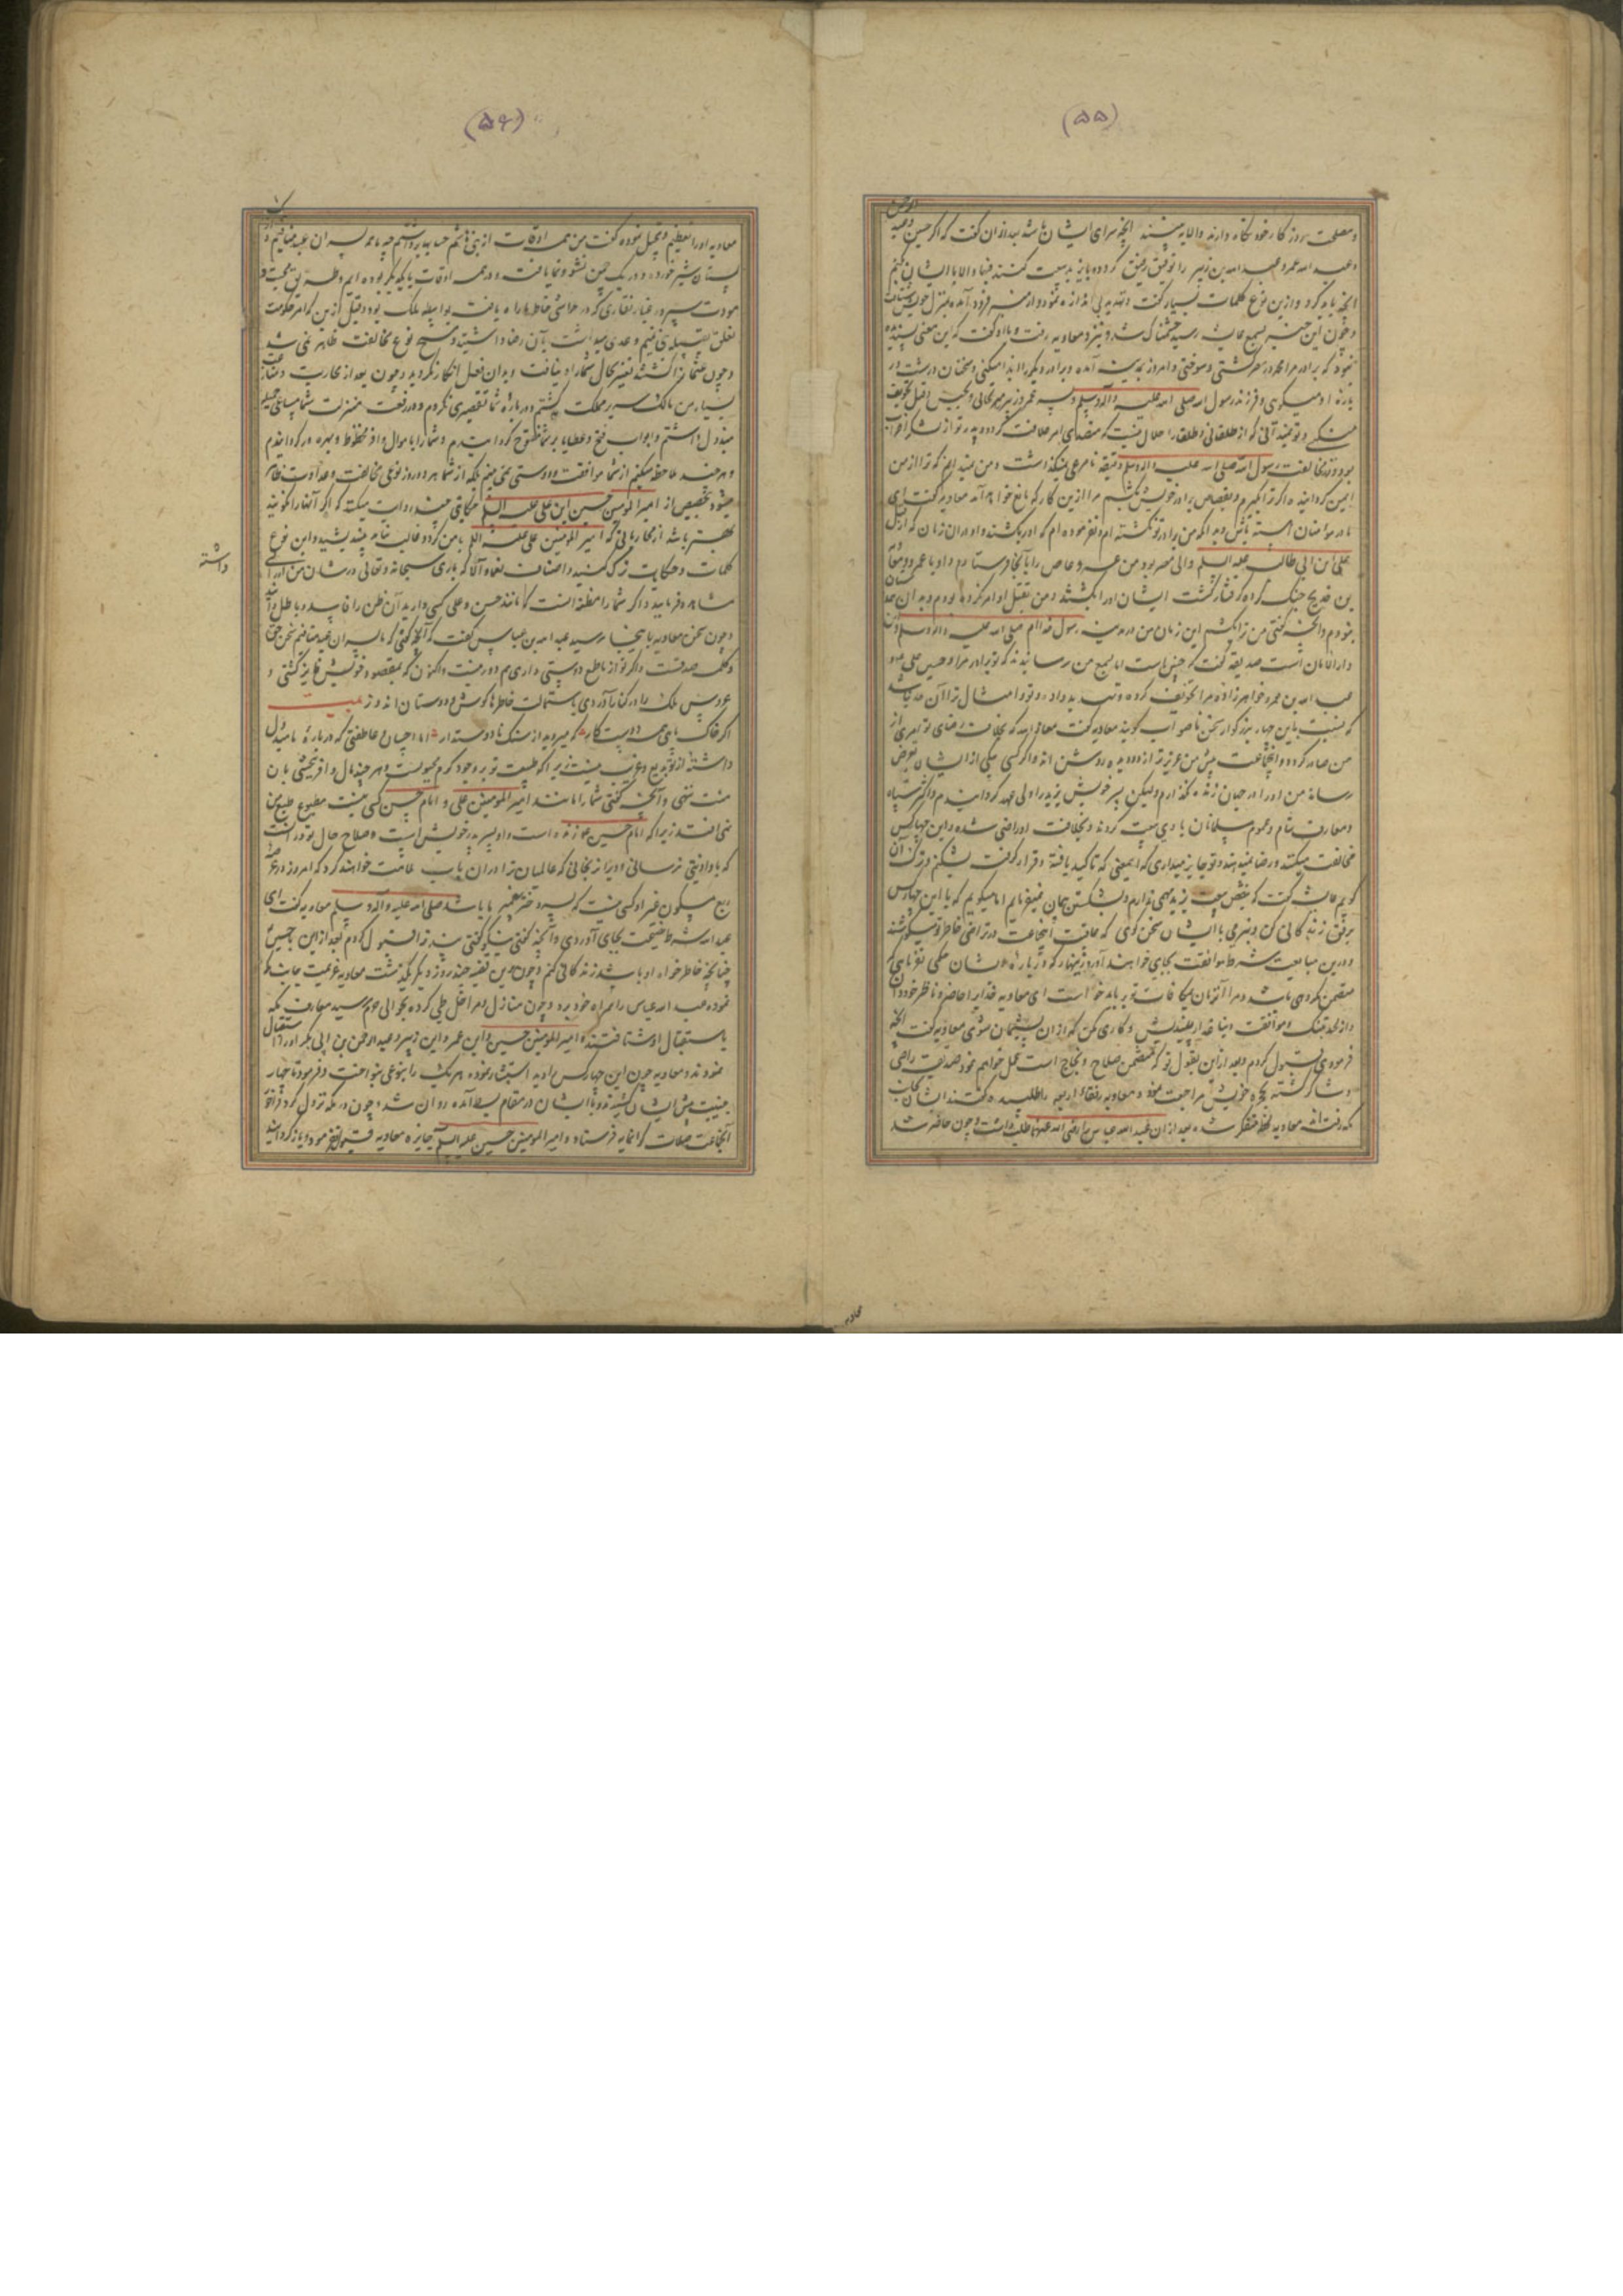 (۵۵)
و مصلحت روز کار خود نگاه دارند والا به بینند آنچه سزای ایشان باشد بعد ازان گفت که اگر حسین و عبد الرحمن
و عبد الله عمر و عبد الله بن زبیر را توفیق رفیق گردد و با یزید بیعت کنند فبها و الا با ایشان کنم
آنچه باید کرد و ازین نوع کلمات بسیار گفت و تهدید بی اندازه نمود و از منبر فرود آمده بمنزل خویش شتافت
و چون این خبر بسمع عایشه رسید خشمناک شد و نزد معاویه رفت و با او گفت که این معنی پسندیده
نبود که برادر مرا محمد در مصر کشتی و سوختی و امروز بمدینه آمده و برادر دیگر را ایذا میکنی و سخنان درشت در
باره او میگوئی و فرزند رسول الله صلی الله علیه و آله وسلم و پسر عمر و زبیر
بود و در مخالفت رسول الله صلی الله علیه و اله وسلم دقیقه نامرعی نگذاشت و من
ایمن گردانیده اگر ترا بگیرم و بقصاص برادر خویش بکشم مرا ازین کار که مانع خواهد آمد معاویه گفت ای
مادر مومنان آهسته باش و بدانکه من برادر تو نکشته ام و نفرموده ام که او را بکشند و او دران زمان که از قبل
علی ابن ابی طالب علیه السلم والی مصر بود من عمرو عاص را بآنجا فرستادم و او با عمرو و معاویه
بن خدیج جنگ کرده گرفتار گشت ایشان او را بکشتند و من بقتل او امر نکرده بودم و بدان
نبودم و آنچه گفتی من ترا بکشم این زمان من در مدینه رسول خدا ام صلی الله علیه و اله وسلم و
دار الامان است صدیقه گفت که چنین است اما بسمع من رسانیدند که تو برادر مرا و حسین علی و
عبد الله بن عمر و خواهرزاده مرا تخویف کرده و تهدید داده و تو و امثال ترا آن حد نباشد
که نسبت باین چهار بزرگوار سخن ناصواب گویند معاویه گفت معاذ الله که بخلاف رضای تو امری از
من صادر گردد و آنجماعت پیش من عزیزتر از دو دیده روشن اند و اگر کسی بیکی از ایشان تعرض
رساند من او را در جهان زنده نگذارم ولیکن پسر خویش یزید را ولی عهد گردانیدم و اکثر سپاه
و معارف شام و عموم مسلمانان با وی بیعت کردند و بخلافت او راضی شده و این چهار کس
مخالفت میکنند و رضا نمیدهند و تو جایز میداری که بیعتی که تاکید یافته و قرار گرفت بشکنم و ترک آن
گویم عایشه گفت که نقض بیعت یزید مهمی ندارم و بشکستن پیمان نمیفرمایم اما میگویم که با این چهار کس
برفق زندگانی کن و بنرمی با ایشان سخن گوی که عاقبت آنجماعت در تراضی خاطر تو میکوشند
و درین مبایعت شرط موافقت بجای خواهند آورد زینهار که در باره ایشان حکمی نفرمایی که
متضمن مکروهی باشد و مرا آنزمان مکافات تو بباید خواست ای معاویه خدایرا حاضر و ناظر خود دان
و از لحد تنگ و موافقت قیامت براندیش و کاری مکن که ازان پشیمان شوی معاویه گفت آنچه
فرمودی قبول کردم و بعد ازین بقول تو که متضمن صلاح و نجاح است عمل خواهم نمود صدیقه راضی
و شاکر گشته بحجره خویش مراجعت نمود و معاویه رفقاء اربعه را طلبیده گفتند ایشان بجانب
مکه رفته اند معاویه لحظه متفکر شده بعد ازان عبد الله عباس را رضی الله عنهما طلب داشت و چون حاضر شد
(۵۶)
معاویه او را تعظیم و تبجیل نموده گفت من همه اوقات از بنی هاشم حساب بر داشتیم چه ما همه پسران عبد منافیم و از یک
پستان شیر خورده و در یک چمن نشو و نما یافته و در همه اوقات با یکدیگر بوده ایم و طریق محبت و
مودت سپرده غبار نقاری که در حواشی خاطر ها راه یافت بواسطه ملک بود و قبل ازین که امر حکومت
تعلق بقبیله بنی تیم و عدی میداشت بآن رضا داشتید و هیچ نوع مخالفت ظاهر نمی شد
و چون عثمان را کشتند تغییر بحال شما راه نیافت و بدان فعل انکار نکردید و چون بعد از محاربت و مقاتلت
بسیار من مالک سریر مملکت گشتم در باره شما تقصیری نکردم و در رفعت منزلت شما مساعی جمیله
مبذول داشتم و ابواب منح و عطایا بر شما مفتوح گردانیدم و شما را باموال وافر محظوظ و بهره ور گردانیدم
و هر چند ملاحظه میکنم از شما موافقت و دوستی نمی بینم بلکه از شما هر روز نوعی مخالفت و عداوت ظاهر
میشود بتخصیص از امیر المومنین حسین ابن علی علیه السلم
بهتر باشد از محارباتی که امیر المومنین علی علیه السلم با من کرد و غالب نیامد بیندیشید و این نوع
کلمات و حکایت ترک کنید و اصناف نعماء آلا که باری سبحانه و تعالی در شان من ارزانی داشته
مشاهده فرمایید و اگر شما را مظنه آنست که مانند حسن و علی کسی دارید آن ظن را فاسد و باطل دانید
و چون سخن معاویه باینجا رسید عبد الله بن عباس گفت که آنچه گفتی که ما پسران عبد منافیم سخن حق
و کلمه صدقست و اگر تو از ما طمع دوستی داری هم دور نیست و اکنون که بمقصود خویش فایز گشتی و
عروس ملک را در کنار آوردی باستمالت خاطرها کوش و دوستان اندوز بیت
اگر خاک یابی همه دوست کار که میروید از سنگ نا دوستدار اما احسان و عاطفتی که در باره ما مبذول
داشته از تو بدیع و غریب نیست زیرا که طبیعت تو بر وجود کرم مجبولست و هر چند مال وافر بخشی بآن
منت ننهی و آنچه گفتی شما را مانند امیر المومنین علی و امام حسن کسی نیست مطبوع طبع من
نمی افتد زیرا که امام حسین ع زنده است و او پسر پدر خویش است و صلاح حال تو در آنست
که باو اذیتی نرسانی و ویرا نرنجانی که عالمیان ترا دران باب ملامت خواهند کرد که امروز در عرصه
ربع مسکون غیر او کسی نیست که پسر دختر پیغمبر ما باشد صلی الله علیه و آله و سلم معاویه گفت ای
عبد الله شرط نصیحت بجای آوردی و آنچه گفتی نیکو گفتی پند ترا قبول کردم بعد ازین با حسین
چنانچه خاطر خواه او باشد زندگانی کنم و چون ازین قضیه چند روز دیگر بگذشت معاویه عزیمت جانب مکه
نموده عبد الله عباس را همراه خود برد و چون منازل و مراحل طی کرده بحوالی حرم رسید معارف مکه
باستقبال او شتافتند و امیر المومنین حسین و ابن عمر و ابن زبیر و عبد الرحمن بن ابی بکر او را استقبال
نمودند و معاویه چون این چهار کس را دید استبشار نموده هر یک را بنوعی بنواخت و فرمود تا چهار
جنیبت پیش ایشان کشیدند و با ایشان در مقام انبساط آمده روان شد و چون در مکه نزول کرد فراخور
آنجماعت صلات گرانمایه فرستاد و امیر المومنین حسین علیه السلم جایزه معاویه قبول نفرموده باز گردانید
داشته